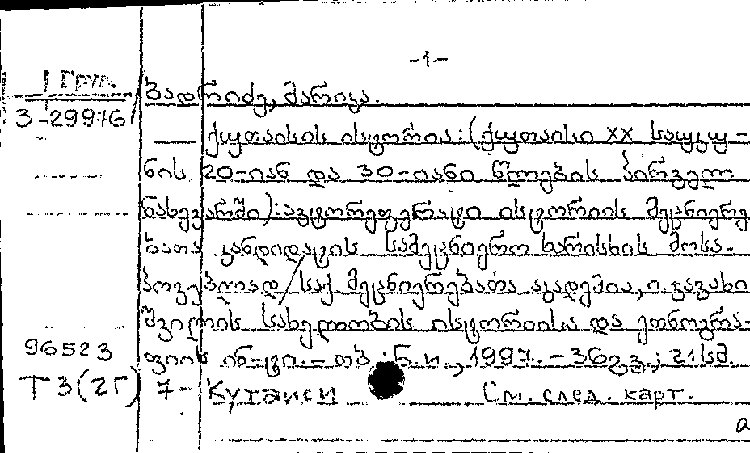 -1-
1 Груз.
3-29976
ბადრიძე, მარიკა.
— ქუთაისის ისტორია: (ქუთაისი XX საუკუ-
ნის 20-იან და 30-იანი წლების პირველ
ნახევარში): ავტორეფერატი ისტორიის მეცნიერე
ბათა კანდიდატის სამეცნიერო ხარისხის მოსა-
პოვებლად / საქ. მეცნიერებათა აკადემია, ი. ჯავახი
შვილის სახელობის ისტორიისა და ეთნოგრა-
ფიის ინ-ტი. - თბ.: 1997. - 36 გვ.; 21 სმ.
96523
Т3(2Г) 7- Кутаиси См. след. карт.